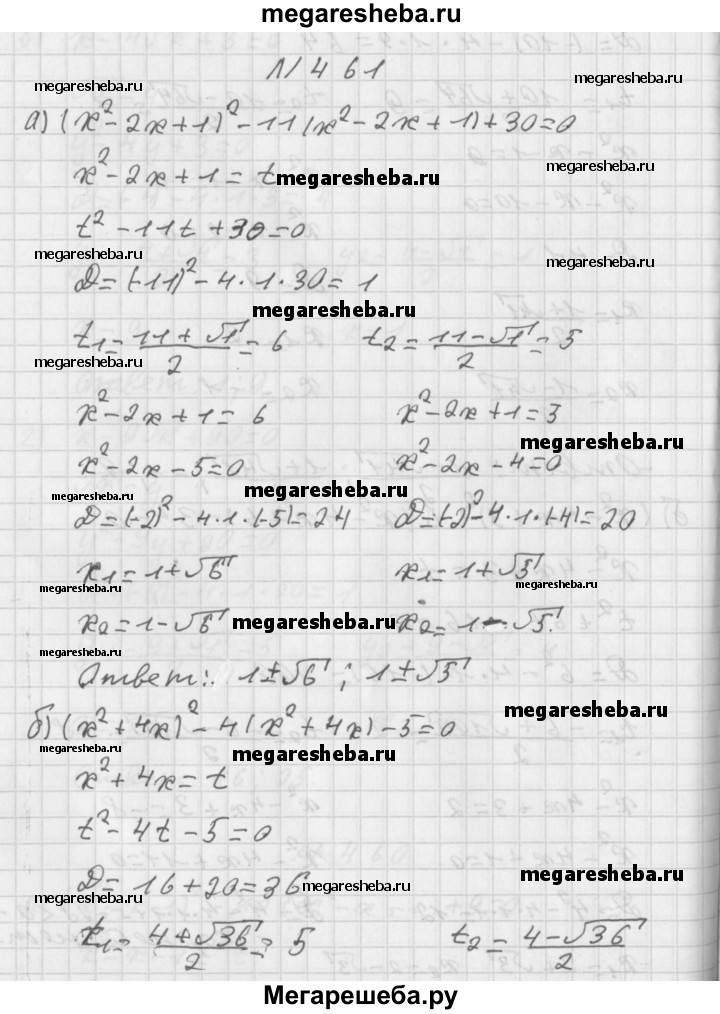 megaresheba.ru
N 461
megaresheba.ru megaresheba.ru
а) (x²-2x+1)²-11(x²-2x+1)+30=0
x²-2x+1=t megaresheba.ru
t²-11t+30=0
megaresheba.ru megaresheba.ru
D=(-11)²-4·1·30=1
megaresheba.ru
t₁=(11+√1)/2=6 t₂=(11-√1)/2=5
megaresheba.ru megaresheba.ru
x²-2x+1=6 x²-2x+1=3
megaresheba.ru
x²-2x-5=0 x²-2x-4=0
megaresheba.ru megaresheba.ru
D=(-2)²-4·1·(-5)=24 D=(-2)²-4·1·(-4)=20
x₁=1+√6 x₁=1+√5
megaresheba.ru megaresheba.ru
x₂=1-√6 megaresheba.ru x₂=1-√5
megaresheba.ru
Ответ: 1±√6; 1±√5
megaresheba.ru
б) (x²+4x)²-4(x²+4x)-5=0
megaresheba.ru megaresheba.ru
x²+4x=t
t²-4t-5=0
D=16+20=36 megaresheba.ru megaresheba.ru
megaresheba.ru megaresheba.ru
t₁=(4+√36)/2=5 t₂=(4-√36)/2
Мегарешеба.ру